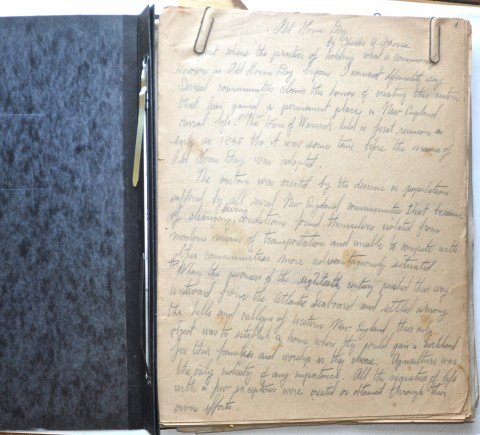 Old Home Day
by Charles A.
Just where the practice of holding what is commonly
known as Old Home Day began I cannot definitely say.
Several communities claim the honor of creating this custom
that has gained a permanent place in New England
rural life. The town of Warwick held its first reunion as
early as 1895 tho it was some time before the name of
Old Home Day was adopted.
The custom was created by the decrease in population
suffered by all rural New England communities that because
of changing living conditions found themselves isolated from
modern means of transportation and unable to compete with
other communities more advantageously situated.
When the pioneers of the eighteenth century pushed their way
westward from the Atlantic seaboard and settled among
the hills and valleys of western New England their only
object was to establish a home where they could gain a livelihood
for their families and worship as they chose. Agriculture was
the only industry of any importance. All the requisites of life
with a few exceptions were created or obtained through their
own efforts